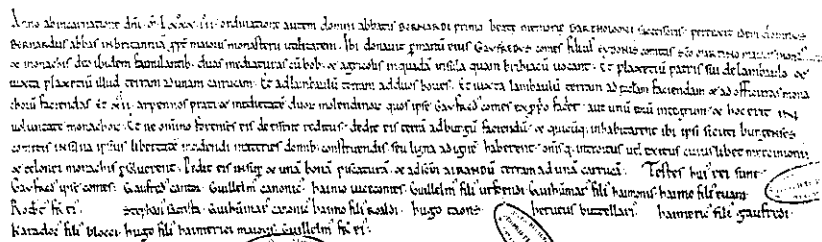 Anno ab incarnatione dn̄i. ō. Lxxx. iii. ordinatione autem domini abbatis BERNARDI primo beate memorie BARTHOLOMEI successoris perrexit idem domnus
BERNARDUS abbas in britanniā ꝓpt̄ maioris monasterii utilitatem. Ibi donavit ꝑ manū eius GAVFREDUS comes filius EVDONIS comitis SCO MARTINO maioris monast
& monachis deo ibidem famulantib. duas mediaturas cū bob. & agricolis in quadā insula quam bihbiacū vocant. Et plaxetiū patris sui de lambaulo &
iuxta plaxetiū illud terram ad unam carrucam. Et ad lambaulū terram ad duos boves. Et iuxta lambaulū terram ad ortam faciendam & ad officinas mona
choꝝ faciendas et xii. arpennos prati & medietatē duoꝝ molendinoꝝ quos ipse Gaufredus comes ex ꝓprio facit. aut unū eoꝝ integrum & hoc erit in
voluntate monachoꝝ. Et ne omnino forenses eis deessent redditus. dedit eis terrā ad burgū faciendū. & quicūq; inhabitarent ibi ipsi sicut burgenses
comitis in silva ipsius libertatē incidendi materies domib. construendis seu ligna ad ignē haberent. omisq; introitus vel exitus cuius libet mercimonii
& telonei monachis solverent. Dedit eis insuꝑ & unā bonā piscaturā. & ad ciuī AIRANDŪ terram ad unā carrucā. Testes huī rei sunt.
Gaufredus ipse comes. Gaufred' cantor. Guillelm' canonic'. haimo vicecomes. Guillelm' fili' urfredi. Guihūmar' fili' haimonis. haimo fili' euani.
Rode' fr̄ ei'. Stephan' baptista. Guihūmar' canonic'. haimo fili' Roaldi. hugo taone. herveus butellari'. haimeric' fili' gaufredi.
Karadoc' fili' blocci. hugo fili' haimerici maioris. Guillelm' fr̄ ei'.